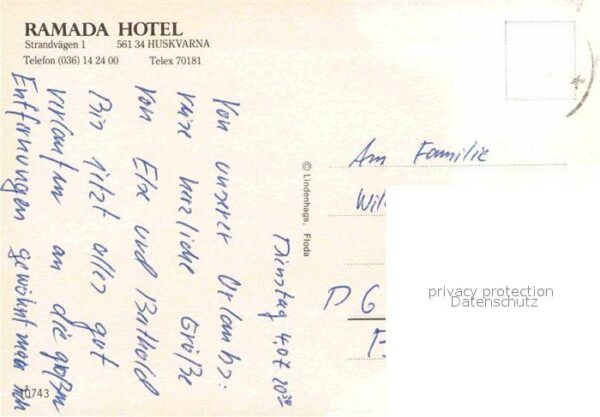 RAMADA HOTEL
Strandvägen 1 561 34 HUSKVARNA
Telefon (036) 14 24 00 Telex 70181
Dienstag 4.07 20³⁰
Von unserer Urlaubs:
reise herzliche Grüße
von Else und Berthold
Bis jetzt alles gut
verlaufen an die großen
Entfernungen gewöhnt man sich
© Lindenhags, Floda
An Familie
D 6
10743
privacy protection
Datenschutz